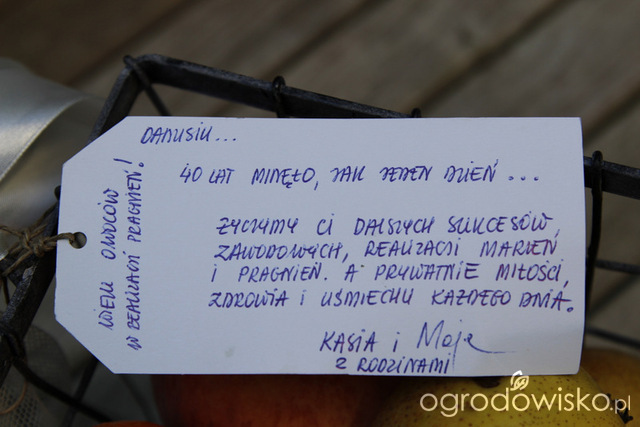 DANUSIU...
40 LAT MINĘŁO, JAK JEDEN DZIEŃ ...
ŻYCZYMY CI DALSZYCH SUKCESÓW
ZAWODOWYCH, REALIZACJI MARZEŃ
I PRAGNIEŃ. A PRYWATNIE MIŁOŚCI,
ZDROWIA I UŚMIECHU KAŻDEGO DNIA.
KASIA i Moje
Z RODZINAMI
WIELU OWOCÓW
W REALIZACJI PRAGNIEŃ!
ogrodowisko.pl